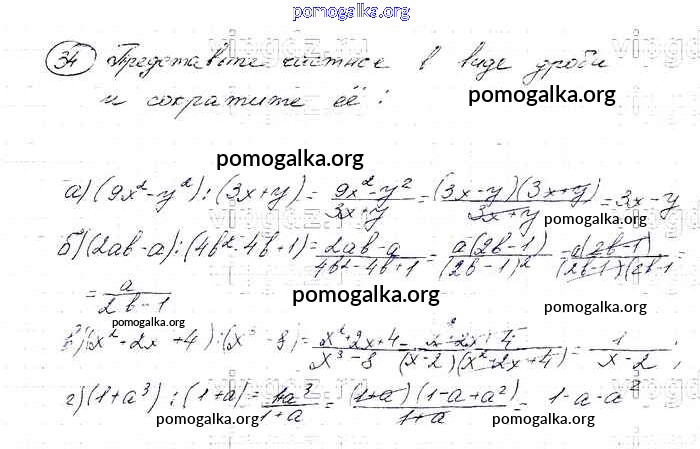 pomogalka.org
34 Представьте частное в виде дроби
и сократите её:
pomogalka.org
pomogalka.org
а) (9x² - y²) : (3x + y) = \frac{9x² - y²}{3x + y} = \frac{(3x - y)(3x + y)}{3x + y} = 3x - y
pomogalka.org
б) (2ab - a) : (4b² - 4b + 1) = \frac{2ab - a}{4b² - 4b + 1} = \frac{a(2b - 1)}{(2b - 1)²} = \frac{a(2b - 1)}{(2b - 1)(2b - 1} =
= \frac{a}{2b - 1}
pomogalka.org
pomogalka.org
pomogalka.org
в) (x² + 2x + 4) : (x³ - 8) = \frac{x² + 2x + 4}{x³ - 8} = \frac{x² + 2x + 4}{(x - 2)(x² + 2x + 4)} = \frac{1}{x - 2};
pomogalka.org
г) (1 + a³) : (1 + a) = \frac{1 + a³}{1 + a} = \frac{(1 + a)(1 - a + a²)}{1 + a} = 1 - a - a²
pomogalka.org
pomogalka.org